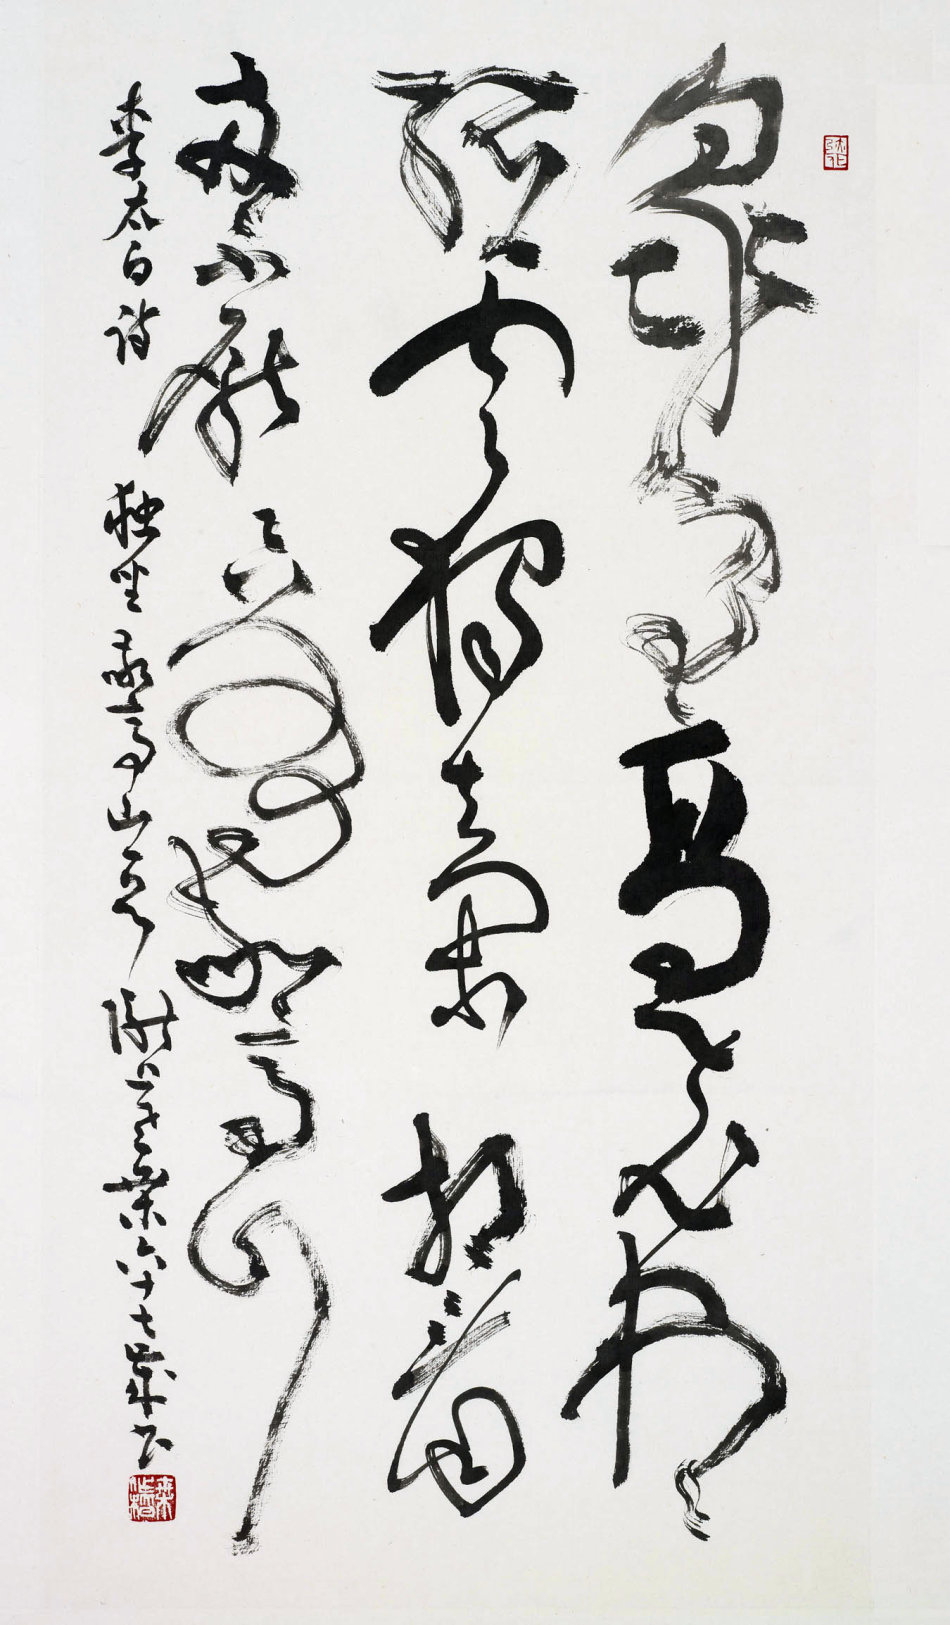 眾鳥高飛盡
孤雲獨去閑相看
兩不厭只有敬亭山
李太白詩獨坐敬亭山 上老桑六十七歲書